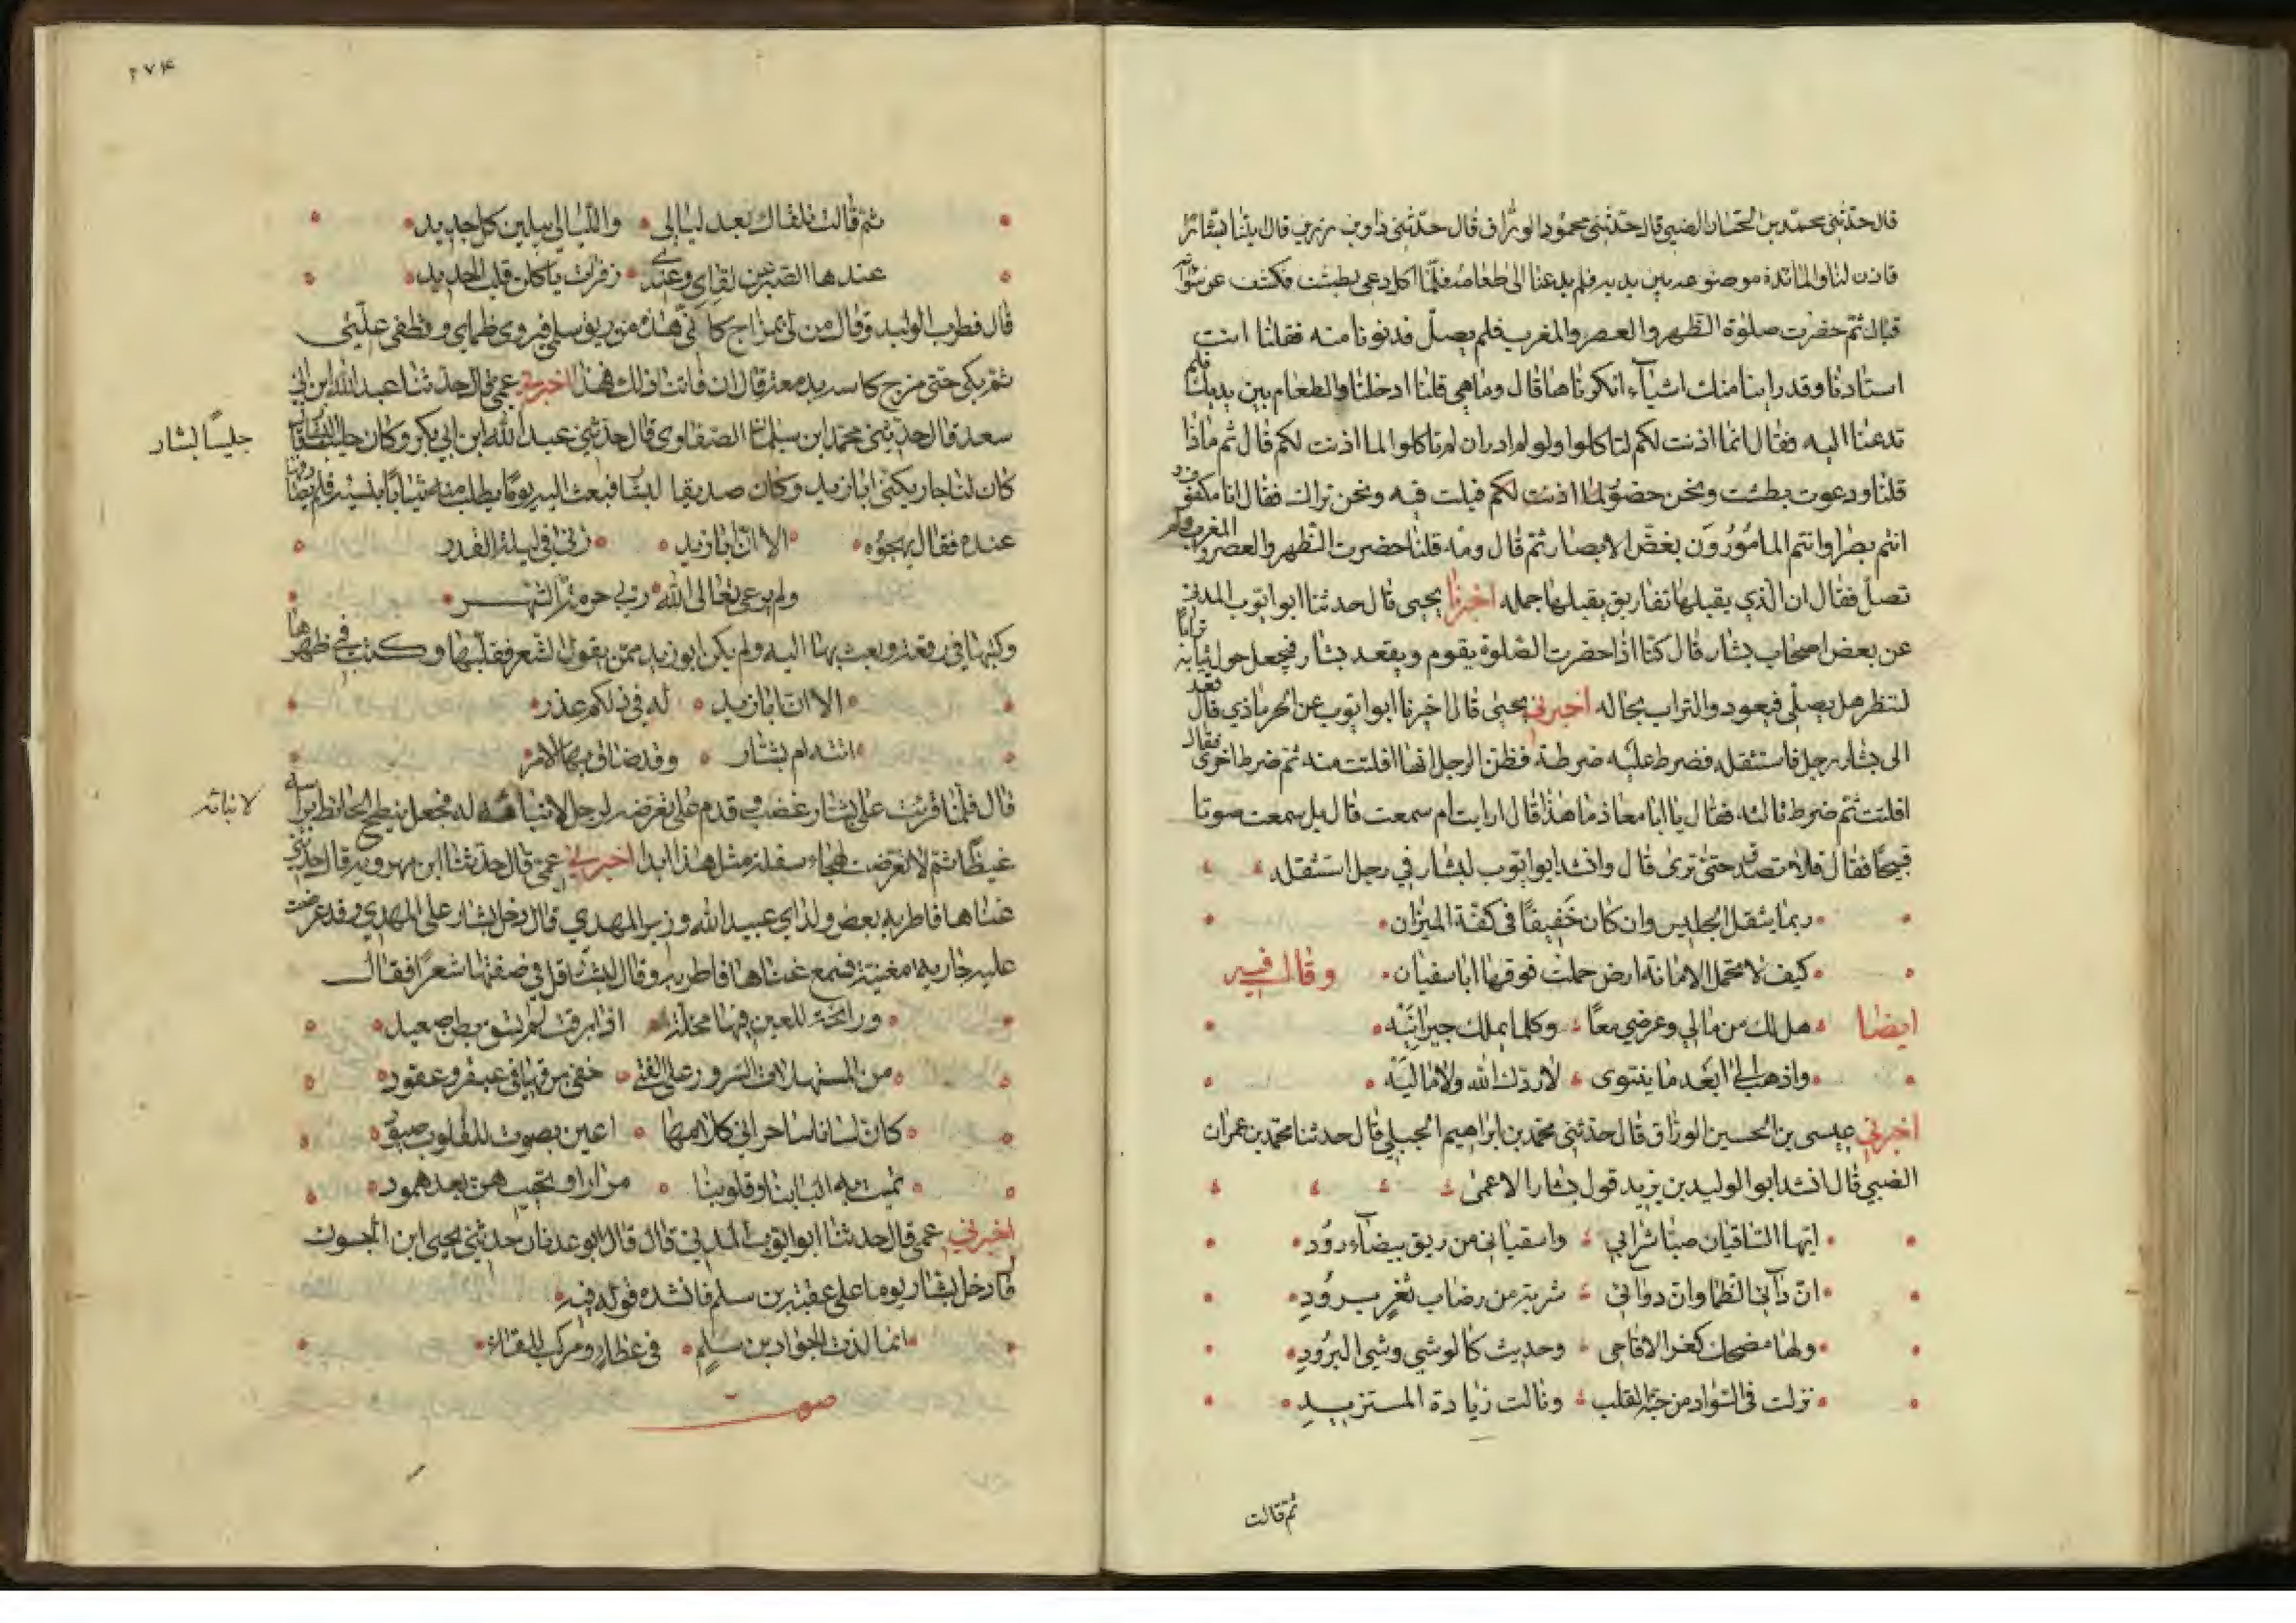 قال حدثني محمد بن الحجاز الضبي قال حدثني محمود الوراق قال حدثني داود بن رزين قال اتينا بشارا
فاذن لنا والمائدة موضوعة بين يديه فلم يدعنا الى طعامه فلما اكل دعى بطشت فكشف عن سوأته
فبال ثم حضرت صلوة الظهر والعصر والمغرب فلم يصل فدنونا منه فقلنا انت
استادنا وقد راينا منك اشياء انكرناها قال وماهي قلنا ادخلنا والطعام بين يديك فلم
تدعنا اليه فقال انما اذنت لكم لتاكلوا ولو لم ارد ان تاكلوا لما اذنت لكم قال ثم ماذا
قلنا ودعوت بطشت ونحن حضور فبلت فيه ونحن نراك فقال انا مكفوف
انتم بصرا وانتم المامورون بغض الابصار ثم قال ومه قلنا حضرت الظهر والعصر والمغرب ولم
تصل فقال ان الذي يقبلها تفاريق يقبلها جمله اخبرنا يحيى قال حدثنا ابو ايوب المدني
عن بعض اصحاب بشار قال كنا اذا حضرت الصلوة يقوم ويقعد بشار فيجعل حول ثيابه ترابا
لننظر هل يصلي فيعود والتراب بحاله اخبرني يحيى قال اخبرنا ابو ايوب عن الحرماذي قال قعد
الى بشار رجل فاستثقله فضرط عليه ضرطة فظن الرجل انها افلتت منه ثم ضرط اخرى فقال
افلتت ثم ضرط ثالثه فقال يا ابا معاذ ما هذا قال ارايت ام سمعت قال بل سمعت صوتا
قبيحا فقال فلا تصدق حتى ترى قال وانشد ابو ايوب لبشار في رجل استثقله
ربما يثقل الجليس وان كان خفيفا في كفة الميزان
كيف لا تحمل الامانة ارض حملت فوقها ابا سفيان وقال فيه
ايضا هل لك من مالي وعرضي معا وكلما يملك جيرانيه
واذهب الى ابعد ما ينتوى لا ردك الله ولا ماليه
اخبرني عيسى بن الحسين الوراق قال حدثني محمد بن ابراهيم الجبلي قال حدثنا محمد بن عمران
الضبي قال انشد ابو الوليد بن يزيد قول بشار الاعمى
ايها الساقيان صبا شرابي واسقياني من ريق بيضاء رود
ان دائي الظما وان دوائي شربة من رضاب ثغر برود
ولها مضحك كغر الاقاحي وحديث كالوشي وشي البرود
نزلت في السواد من حبة القلب ونالت زيادة المستزيد
ثم قالت
٢٧۴
ثم قالت نلقاك بعد ليالي والليالي يبلين كل جديد
عندها الصبر عن لقاي وعندي زفرات ياكلن قلب الحديد
قال فطرب الوليد وقال من لي بمزاج كاسي هذه من ريق سلمى فيروى ظماي وتطفى غلتي
ثم بكى حتى مزج كاسه بدمعه وقال ان فاتنا ذلك فهذا اخبرني عمي قال حدثنا عبد الله ابن ابي
سعد قال حدثني محمد ابن سلمان الصفاوي قال حدثني عبد الله ابن ابي بكر وكان
جليسا لبشار
كان لنا جار يكنى ابا زيد وكان صديقا لبشار فبعث اليه يوما يطلب منه ثيابا بنسيئة فلم يصادفها
عنده فقال يهجوه الا ان ابا زيد زنى في ليلة القدر
ولم يرعى تعالى الله ربي حرمة الشهر
وكتبها في رقعة وبعث بها اليه ولم يكن ابو زيد ممن يقول الشعر فقلبها وكتب في ظهرها
الا ان ابا زيد له في ذلكم عذر
اتته ام بشار وقد ضاق بها الامر
قال فلما قرئت على بشار غضب وقدم على تعرضه لرجل لا نباهة له فجعل ينطح الحائط براسه
لا نباهه
غيظا ثم لا تعرضت لهجاء سفلة مثل هذا ابدا اخبرني عمي قال حدثنا ابن مهرويه قال حدثني
بعض ولد ابي عبيد الله وزير المهدي قال دخل بشار على المهدي وقد عرضت
عليه جارية مغنية فسمع غناها فاطربه وقال لبشار قل في صفتها شعرا فقال
ورائحة للعين فيها مخيلة اذا برقت لم تسق بطن صعيد
من المستهلات السرور على الفتى خفى برقها في عبقر وعقود
كان لسانا ساحرا في كلامها اعين بصوت للقلوب صيود
تميت به البابنا وقلوبنا مرارا وتحييهن بعد همود
اخبرني عمي قال حدثنا ابو ايوب المديني قال قال ابو عدنان حدثني يحيى ابن الجون
قال دخل بشار يوما على عقبة بن سلم فانشده قوله فيه
انما لذة الجواد بن سلم في عطاء ومركب للقاء
صوت